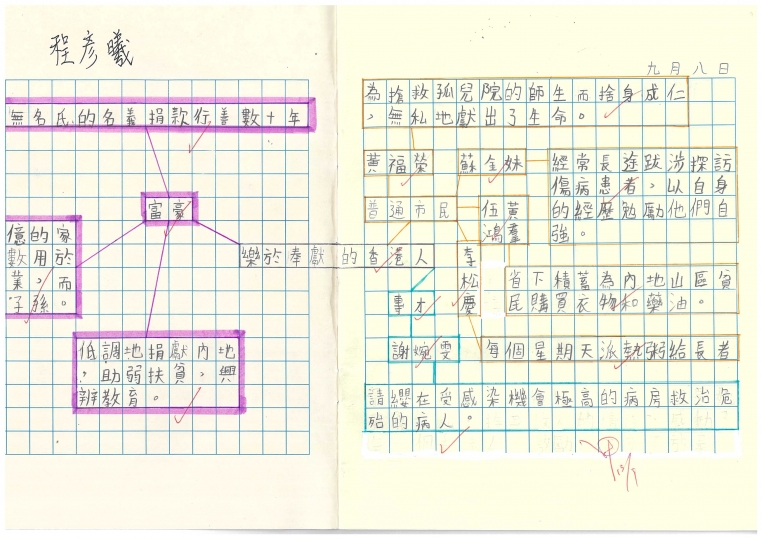 程彥曦
九月八日
無名氏的名義捐款行善數十年
富豪
億的家
數用於
業，而
子孫。
低調地捐獻內地
，助弱扶貧，興
辦教育。
樂於奉獻的香港人
為搶救孤兒院的師生而捨身成仁
，無私地獻出了生命。
黃福榮
蘇金妹
經常長途跋涉探訪
傷病患者，以自身
的經歷勉勵他們自
強。
普通市民
伍黃
鴻羣
李松慶
省下積蓄為內地山區貧
民購買衣物和藥油。
每個星期天派熱粥給長者
專才
謝婉雯
請纓在受感染機會極高的病房救治危
殆的病人。
13/9